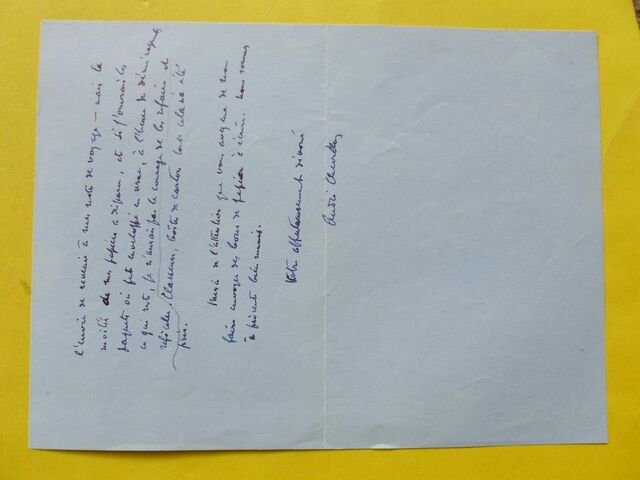 l'envie de revenir à mes notes de voyage – mais la
moitié de mes papiers a disparu, et si j'ouvrais les
paquets où fut enveloppé en vrac, à l'heure de déménager,
ce qui reste, je n'aurais pas le courage de les refaire et
reficeler. Classeurs, boîtes de carton, tout cela a été
pris.
Merci de l'attention que vous avez eue de
faire envoyer des bons de papier à écrire. Nous sommes
à présent bien munis.
Votre affectueusement dévoué
André Chevrillon